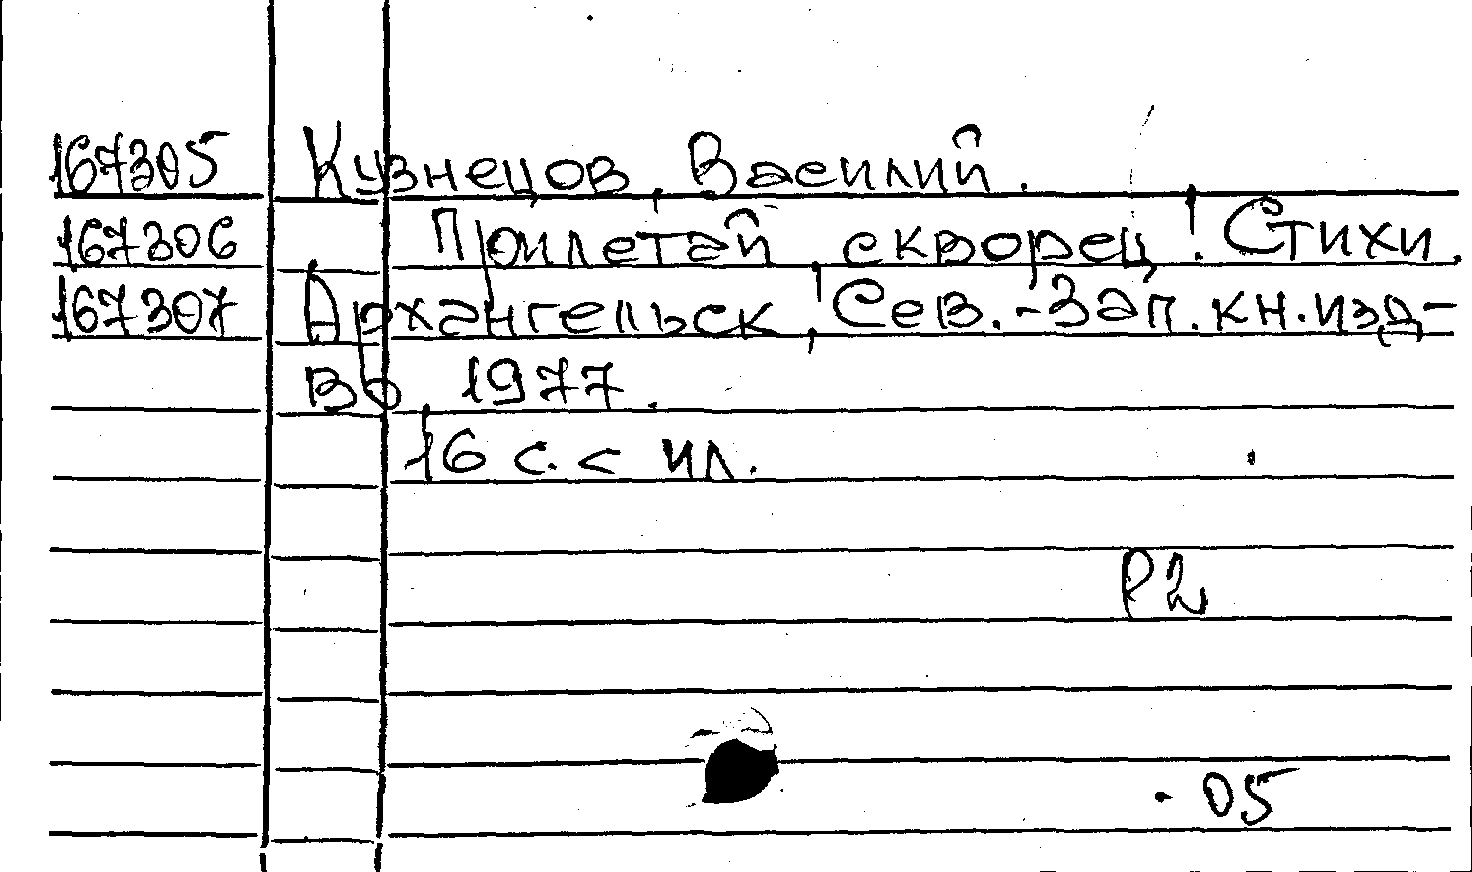 167305 Кузнецов, Василий.
167306 Прилетай, скворец! Стихи.
167307 Архангельск, Сев.-Зап. кн. изд-
во, 1977.
16 с. с ил.
Р2
05